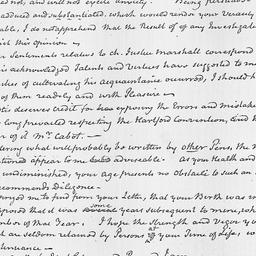 not, and will not excite anxiety. Being persuas
adduced and substantiated, which would render your veracity
able, I do not apprehend that the Result of of any Investigat
ish this opinion. —
r Sentiments relative to Ch. Justice Marshall correspond
is acknowledged Talents and virtues have suggested to me
ties of cultivating his acquaintance occurred, I should h
of them readily and with Pleasure —
tis deserves credit for how exposing the Errors and mistake
s long prevailed respecting the Hartford Convention, and the
r of it Mr. Cabot. —
dering what will probably be written by other Pens, the
tioned appear to me adviseable. As your Health and
undiminished, your age presents no obstacle to such an
ecommends Diligence —
prized me to find from your Letter, that your Birth was in
pposed that it was some years subsequent to mine, which
mber of that Year. I hope the Strength and vigor you
are seldom retained by Persons at your Time of Life, w
tinuance —